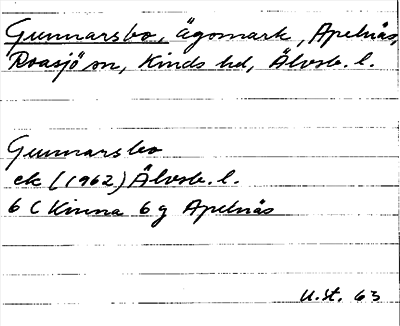 Gunnarsbo, ägomark, Apelnäs,
Roasjö sn, Kinds hd, Älvsb. l.
Gunnarsbo
ek (1962) Älvsb. l.
6 C Kinna 6 g Apelnäs
U.St. 63